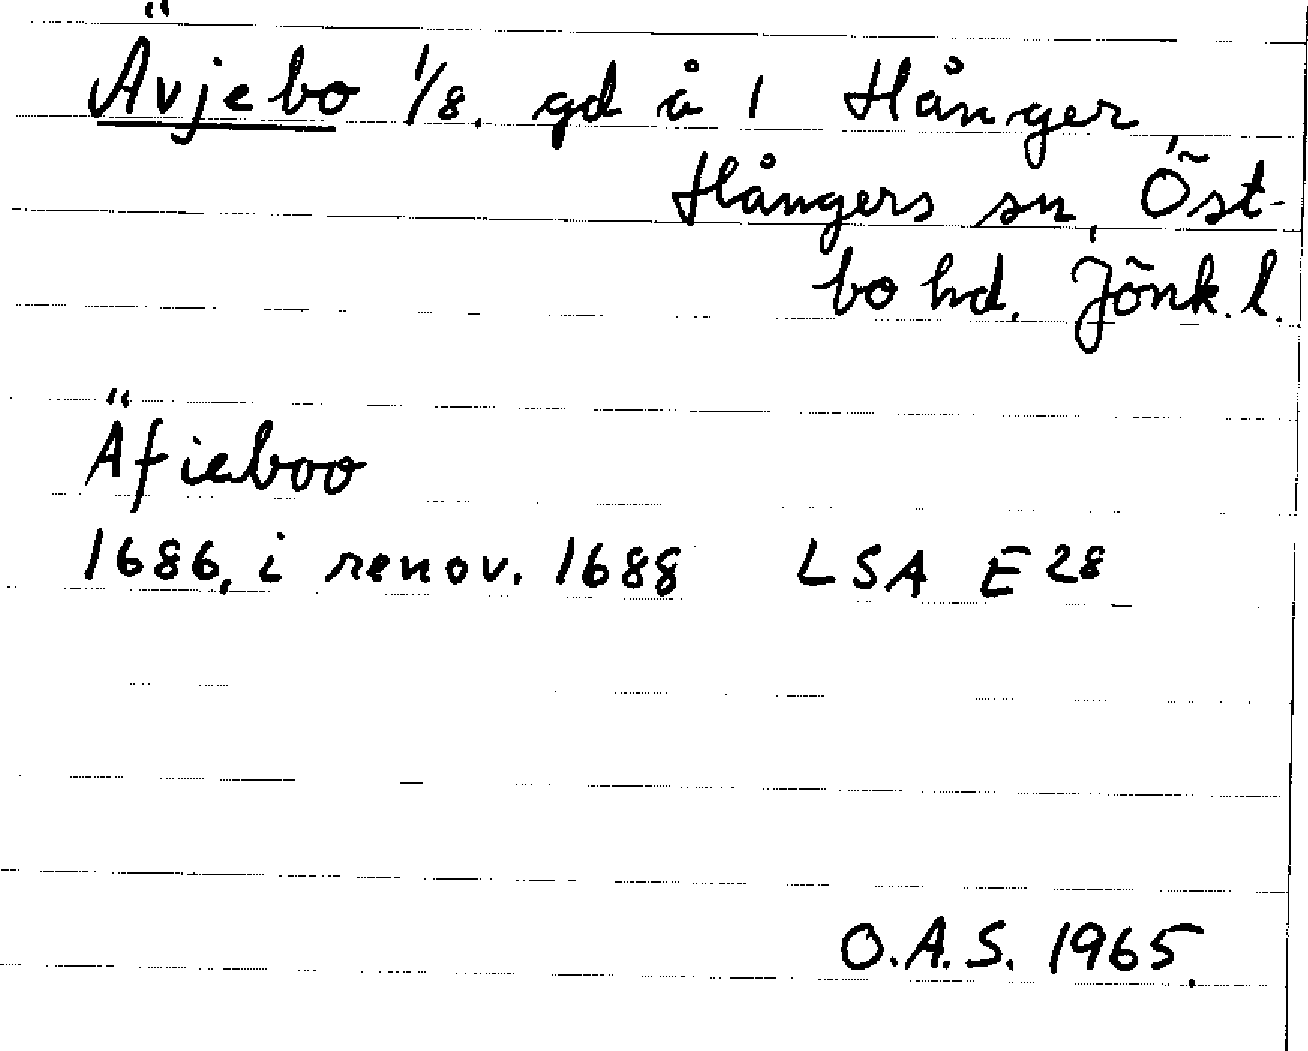 Ävjebo 1/8. gd å 1 Hånger,
Hångers sn, Öst-
bo hd. Jönk. l.
Äfieboo
1686, i renov. 1688 LSA E 28
O.A.S. 1965.